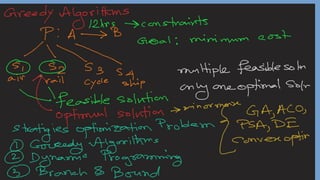 Greedy Algorithms
P: A → B
12hrs → constraints
Goal: minimum cost
S1 S2 S3 S4
air rail cycle ship
multiple feasible soln
only one optimal soln
feasible solution
optimal solution → min or max
GA, ACO,
PSA, DE
convex optim
strategies optimization Problem
① Greedy Algorithms
② Dynamic Programming
③ Branch & Bound